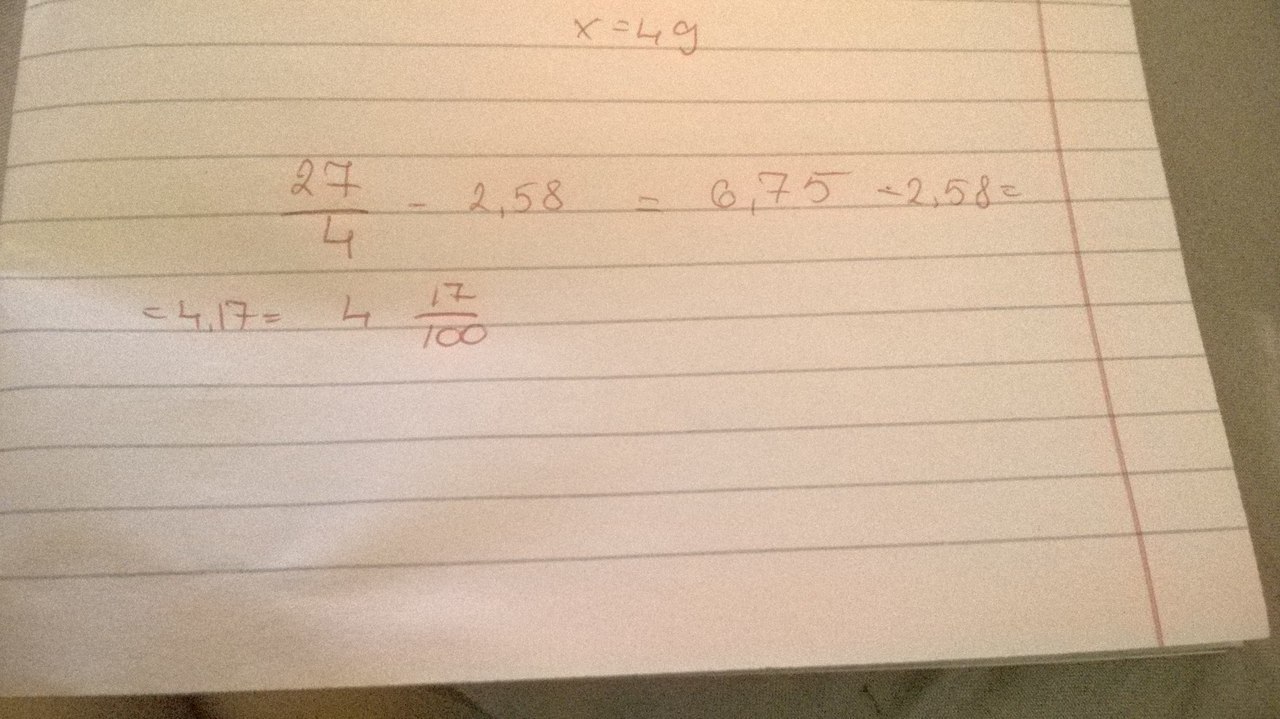 x = 4 g
27/4 - 2,58 = 6,75 - 2,58 =
= 4,17 = 4 17/100